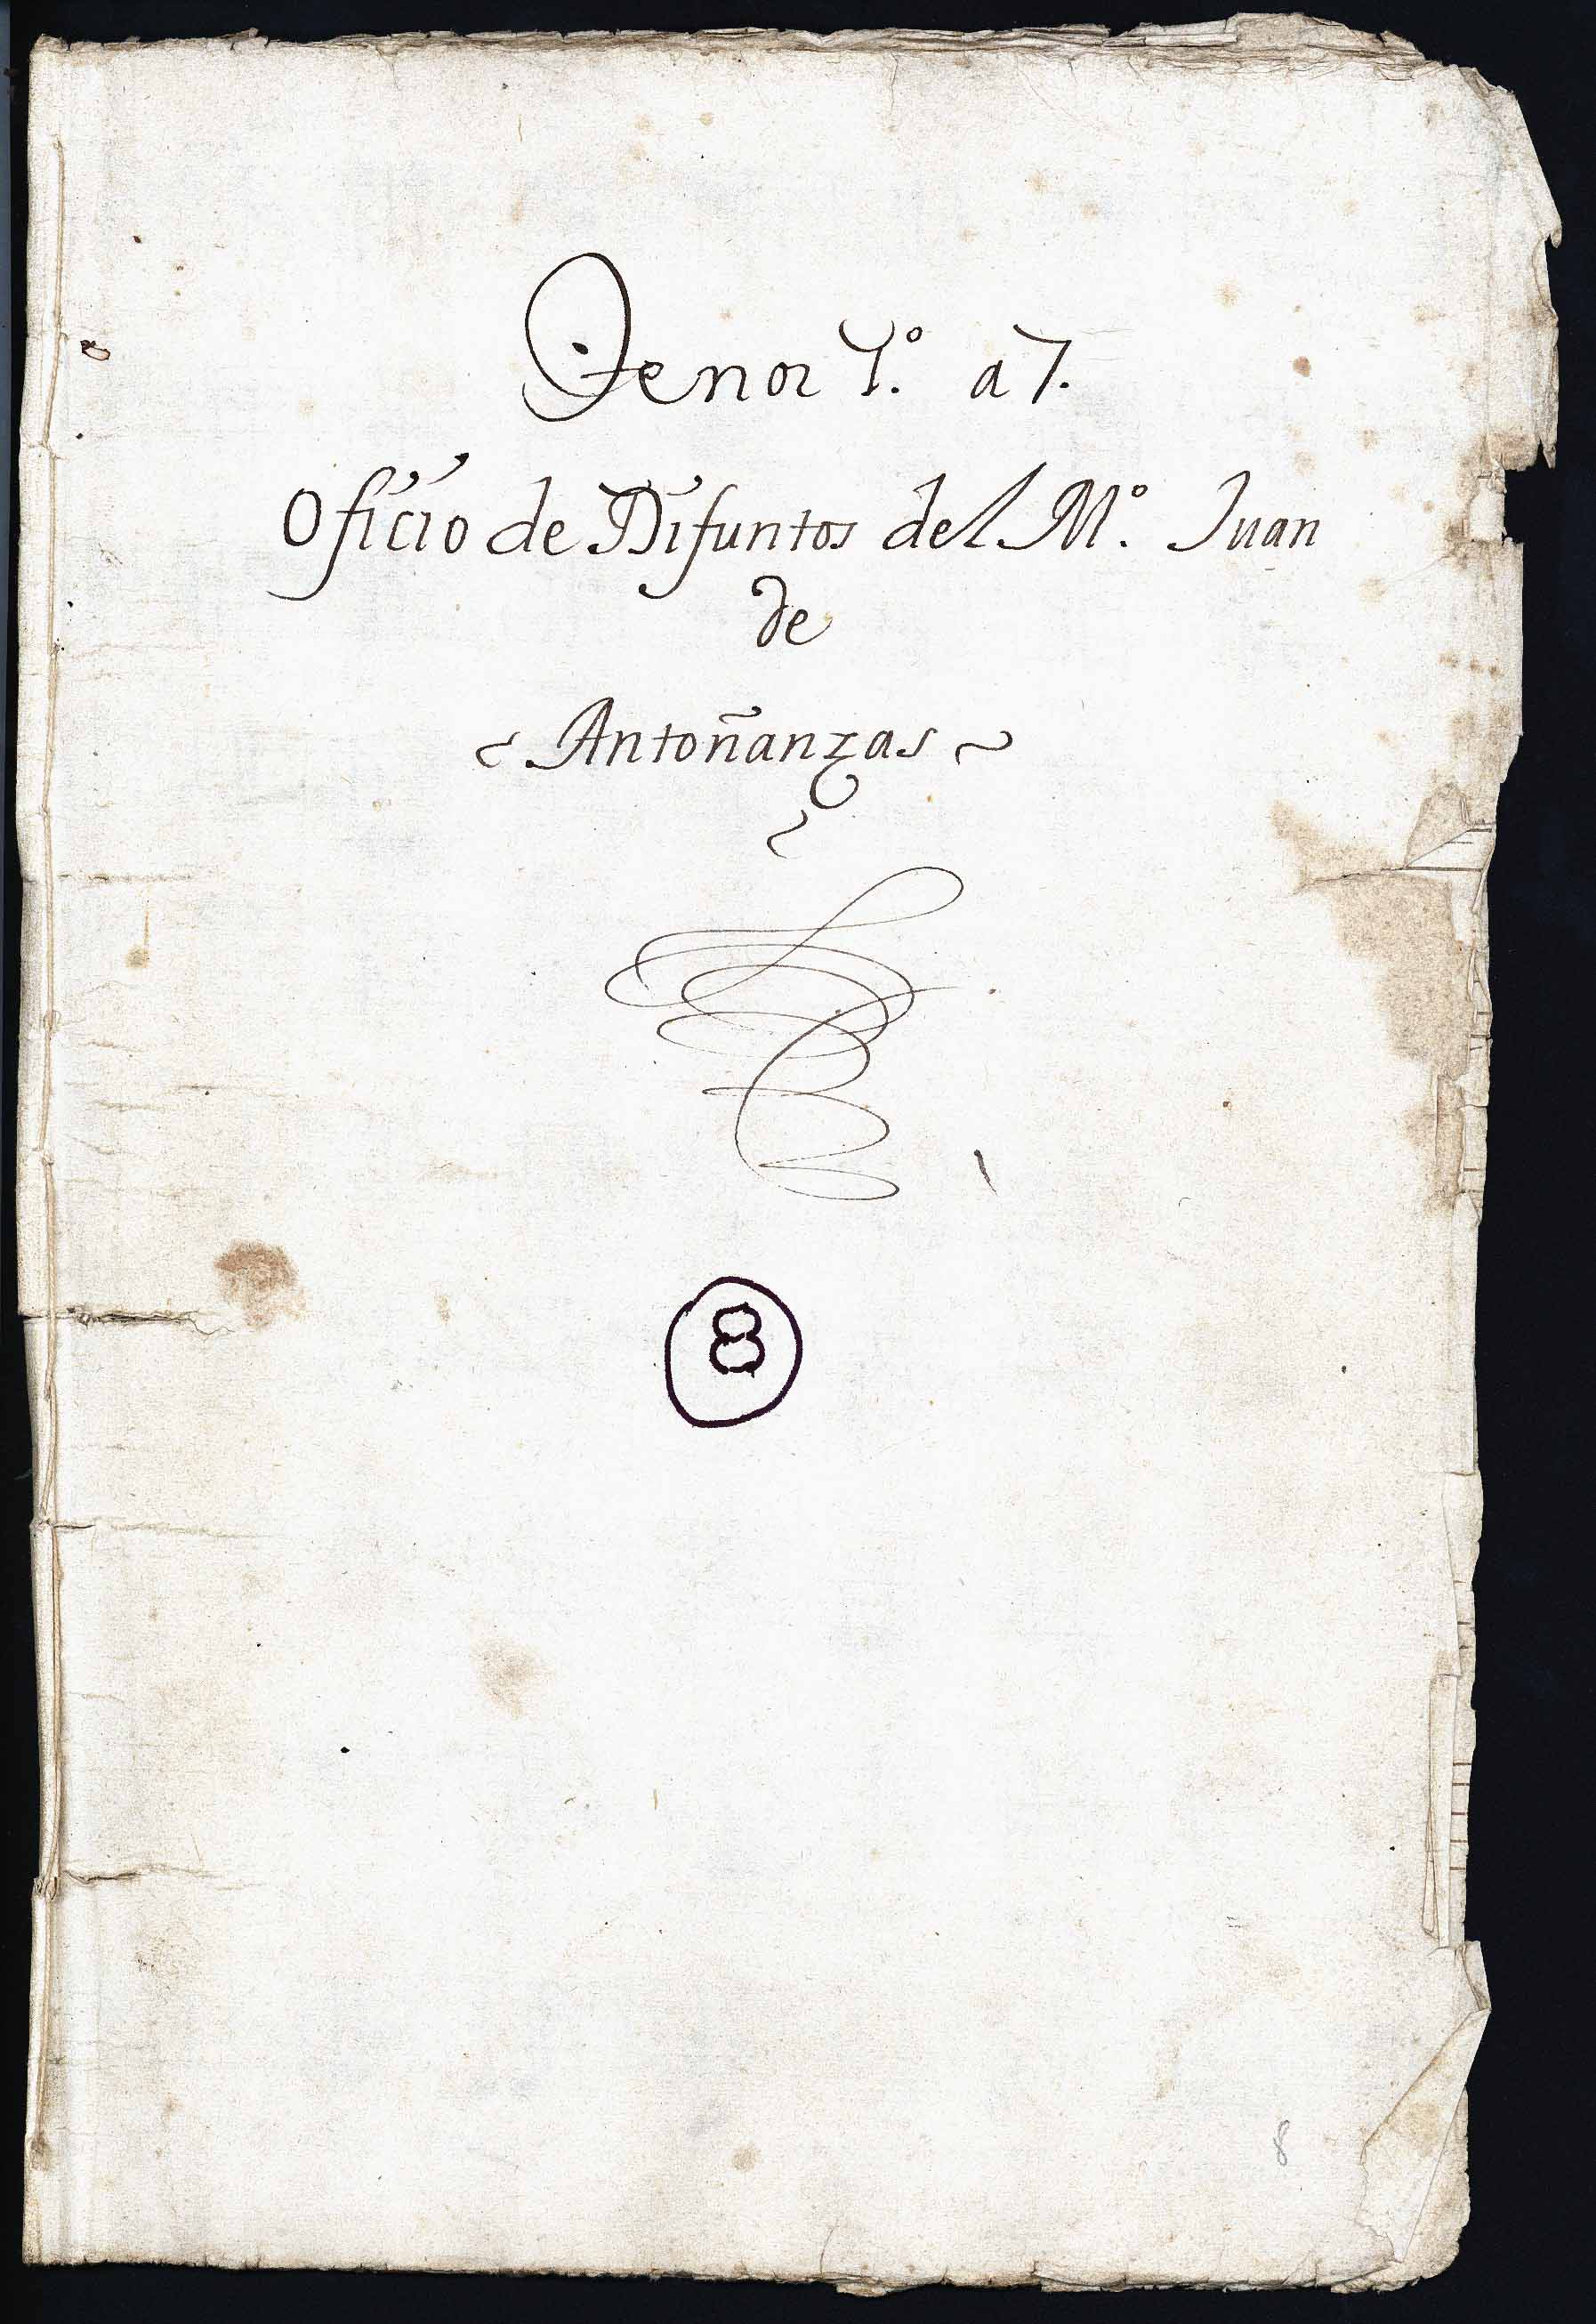 Tenor 1.º a 7.
Oficio de Difuntos del M.º Juan
de
Antoñanzas
8
8